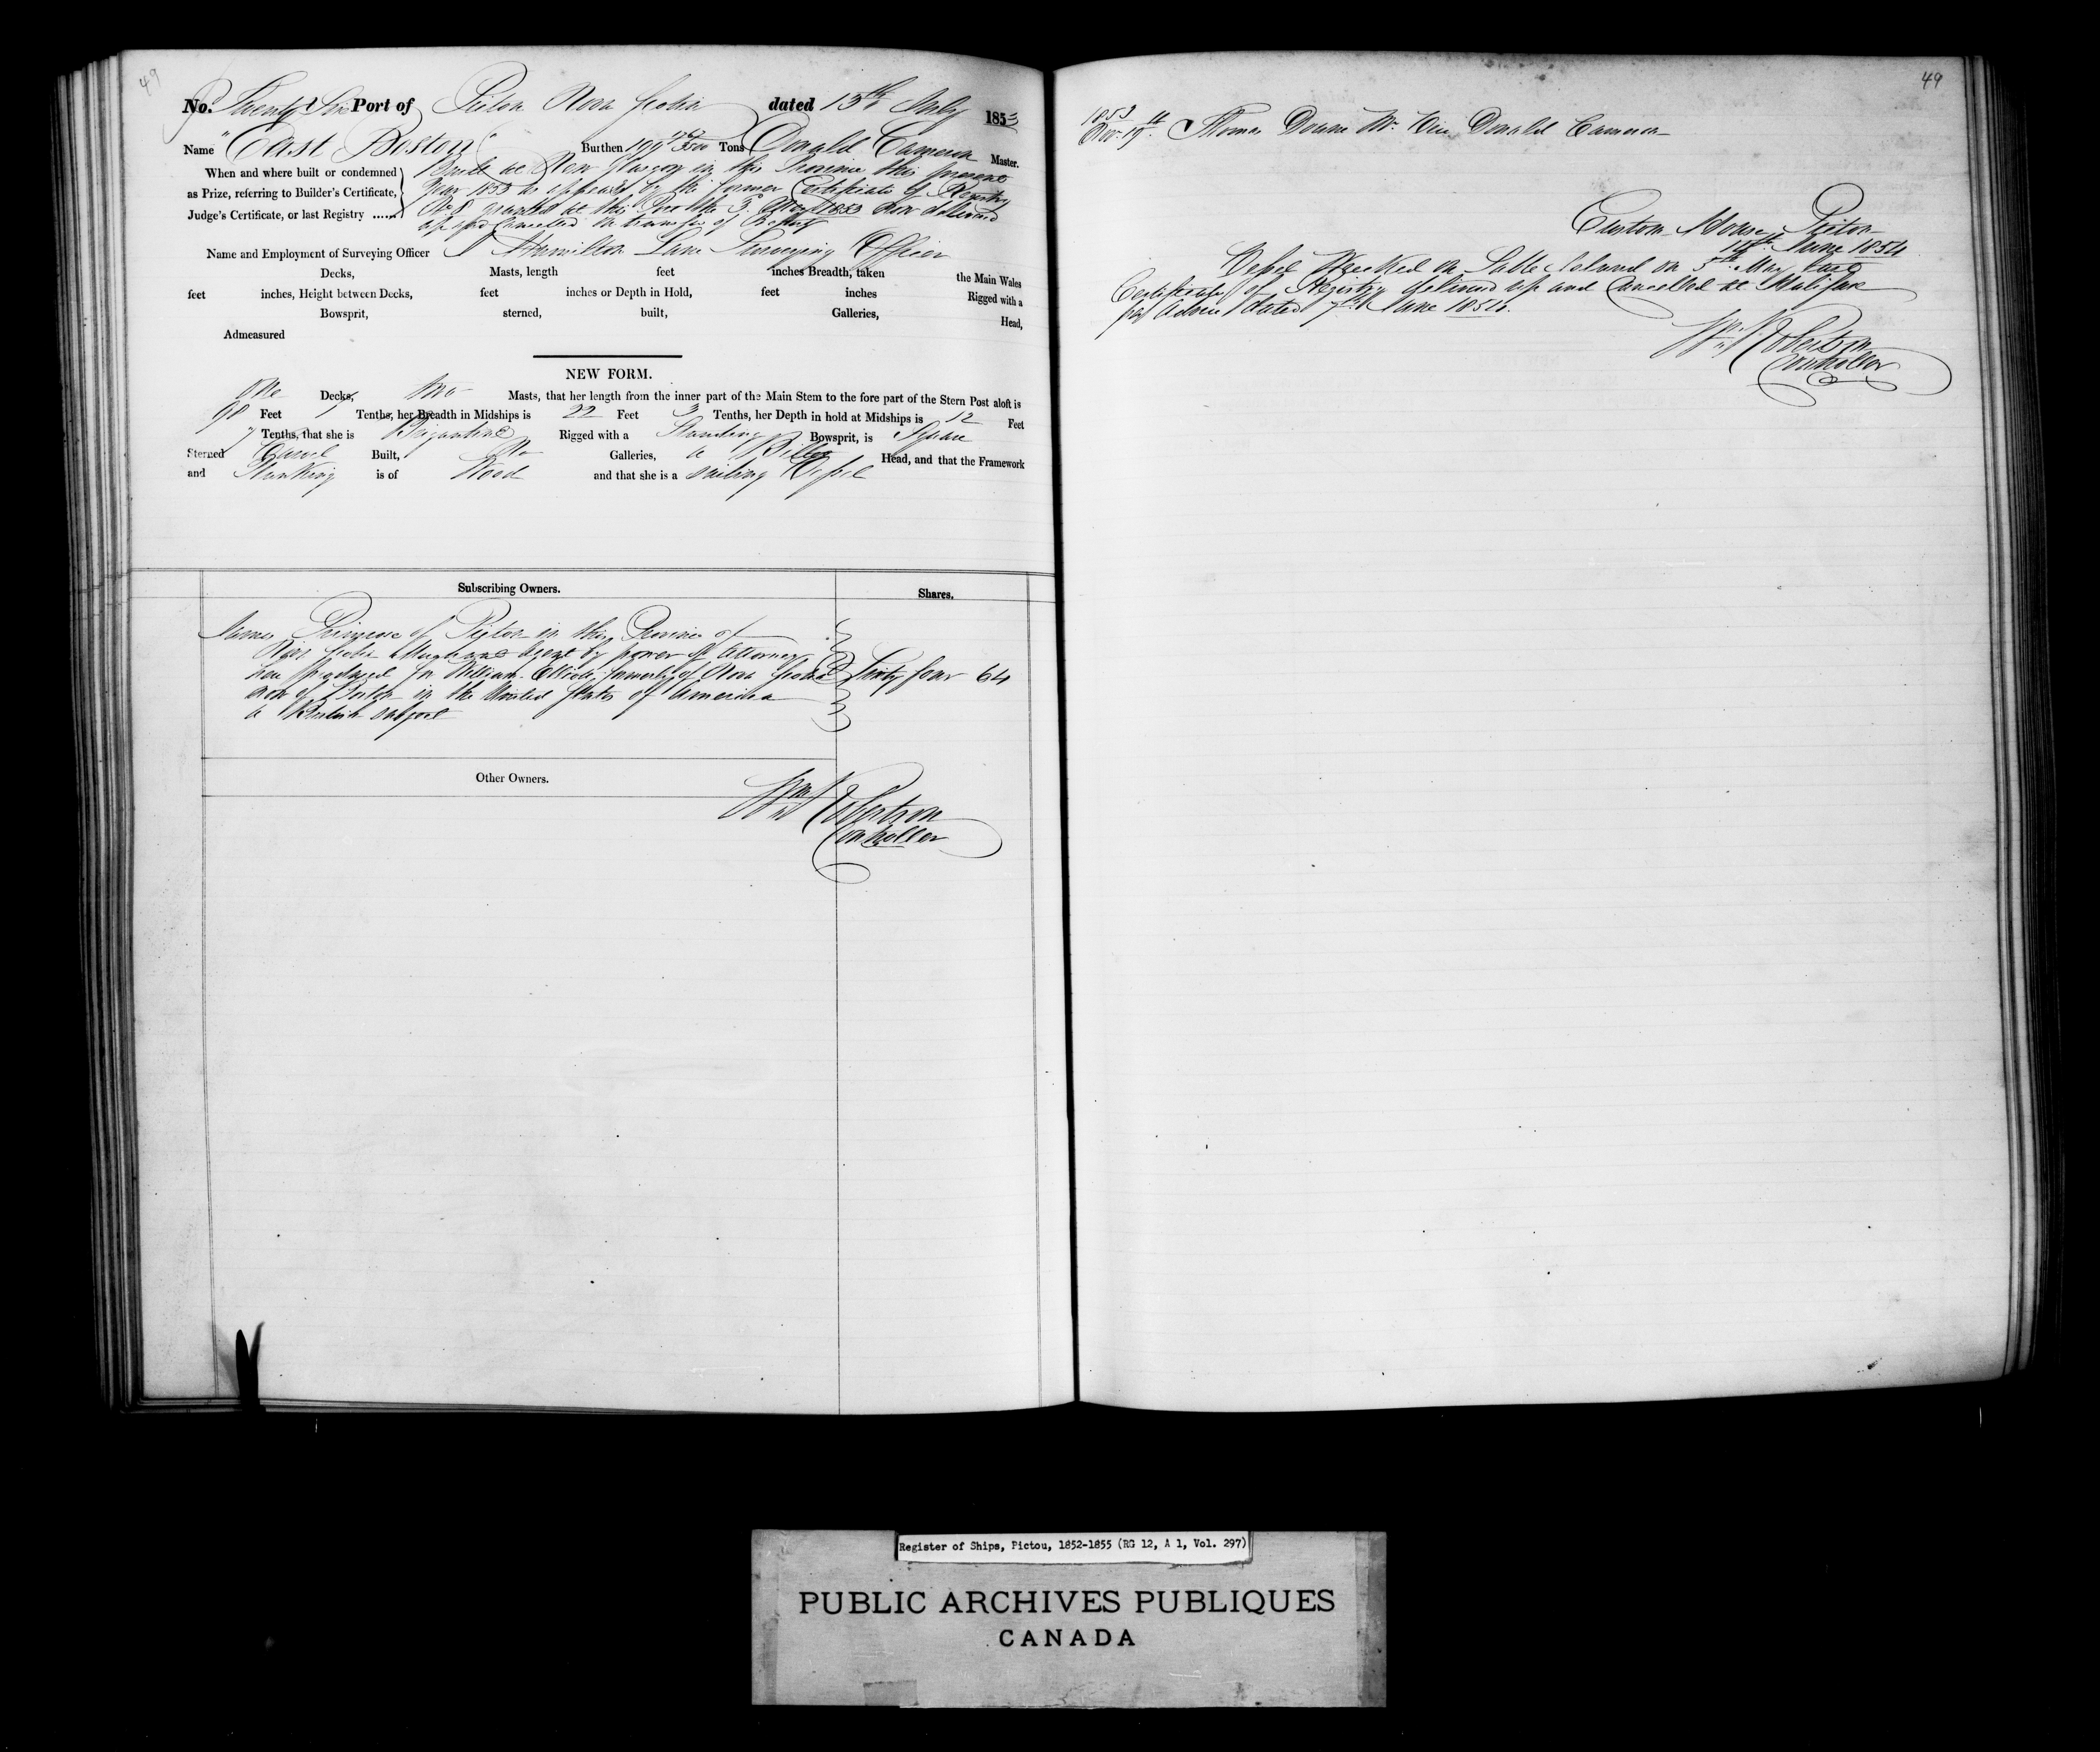 49
No. Twenty Six Port of Pictou Nova Scotia dated 13th July 1853
Name "East Boston" Burthen 199 Tons Donald Cameron Master.
When and where built or condemned
as Prize, referring to Builder's Certificate,
Judge's Certificate, or last Registry ......
Built at New Glasgow in this Province this present
Year 1853 as appears by the former Certificate of Registry
No. 8 granted at this Port the 3d May 1853 now delivered
up and Cancelled on transfer of Property
Name and Employment of Surveying Officer Hamilton Lane Surveying Officer
Decks, Masts, length feet inches Breadth, taken the Main Wales
feet inches, Height between Decks, feet inches or Depth in Hold, feet inches Rigged with a
Bowsprit, sterned, built, Galleries, Head,
Admeasured
NEW FORM.
One Decks, two Masts, that her length from the inner part of the Main Stem to the fore part of the Stern Post aloft is
98 Feet 1 Tenths, her Breadth in Midships is 22 Feet 3 Tenths, her Depth in hold at Midships is 12 Feet
7 Tenths, that she is Brigantine Rigged with a Standing Bowsprit, is Square
Sterned Carvel Built, No Galleries, a Billet Head, and that the Framework
and Planking is of Wood and that she is a sailing Vessel
Subscribing Owners. Shares.
James Primrose of Pictou in the Province of
Nova Scotia Agent by power of Attorney
here produced for William formerly of Nova Scotia
now of Boston in the United States of America
a British subject
Sixty four 64
Other Owners.
Wm Robertson
Controller
49
1853
Nov. 19th Thomas Downe Mr. Vice Donald Cameron
Custom House, Pictou
15th June 1854
Vessel Wrecked on Sable Island on 5th May last
Certificate of Registry delivered up and Cancelled at Halifax
per Advice dated 7th June 1854.
Wm Robertson
Controller
Register of Ships, Pictou, 1852-1855 (RG 12, A 1, Vol. 297)
PUBLIC ARCHIVES PUBLIQUES
CANADA